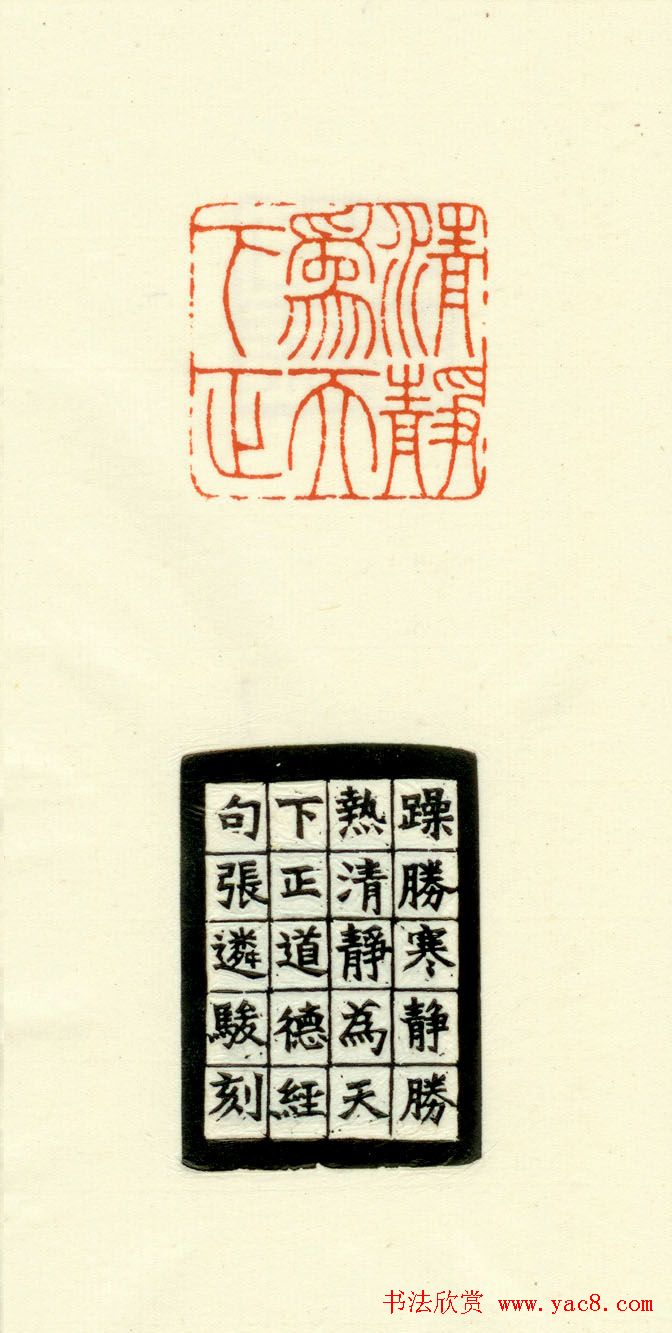 清靜
爲天
下正
躁勝寒静勝
熱清靜為天
下正道德經
句張遴駿刻
书法欣赏 www.yac8.com